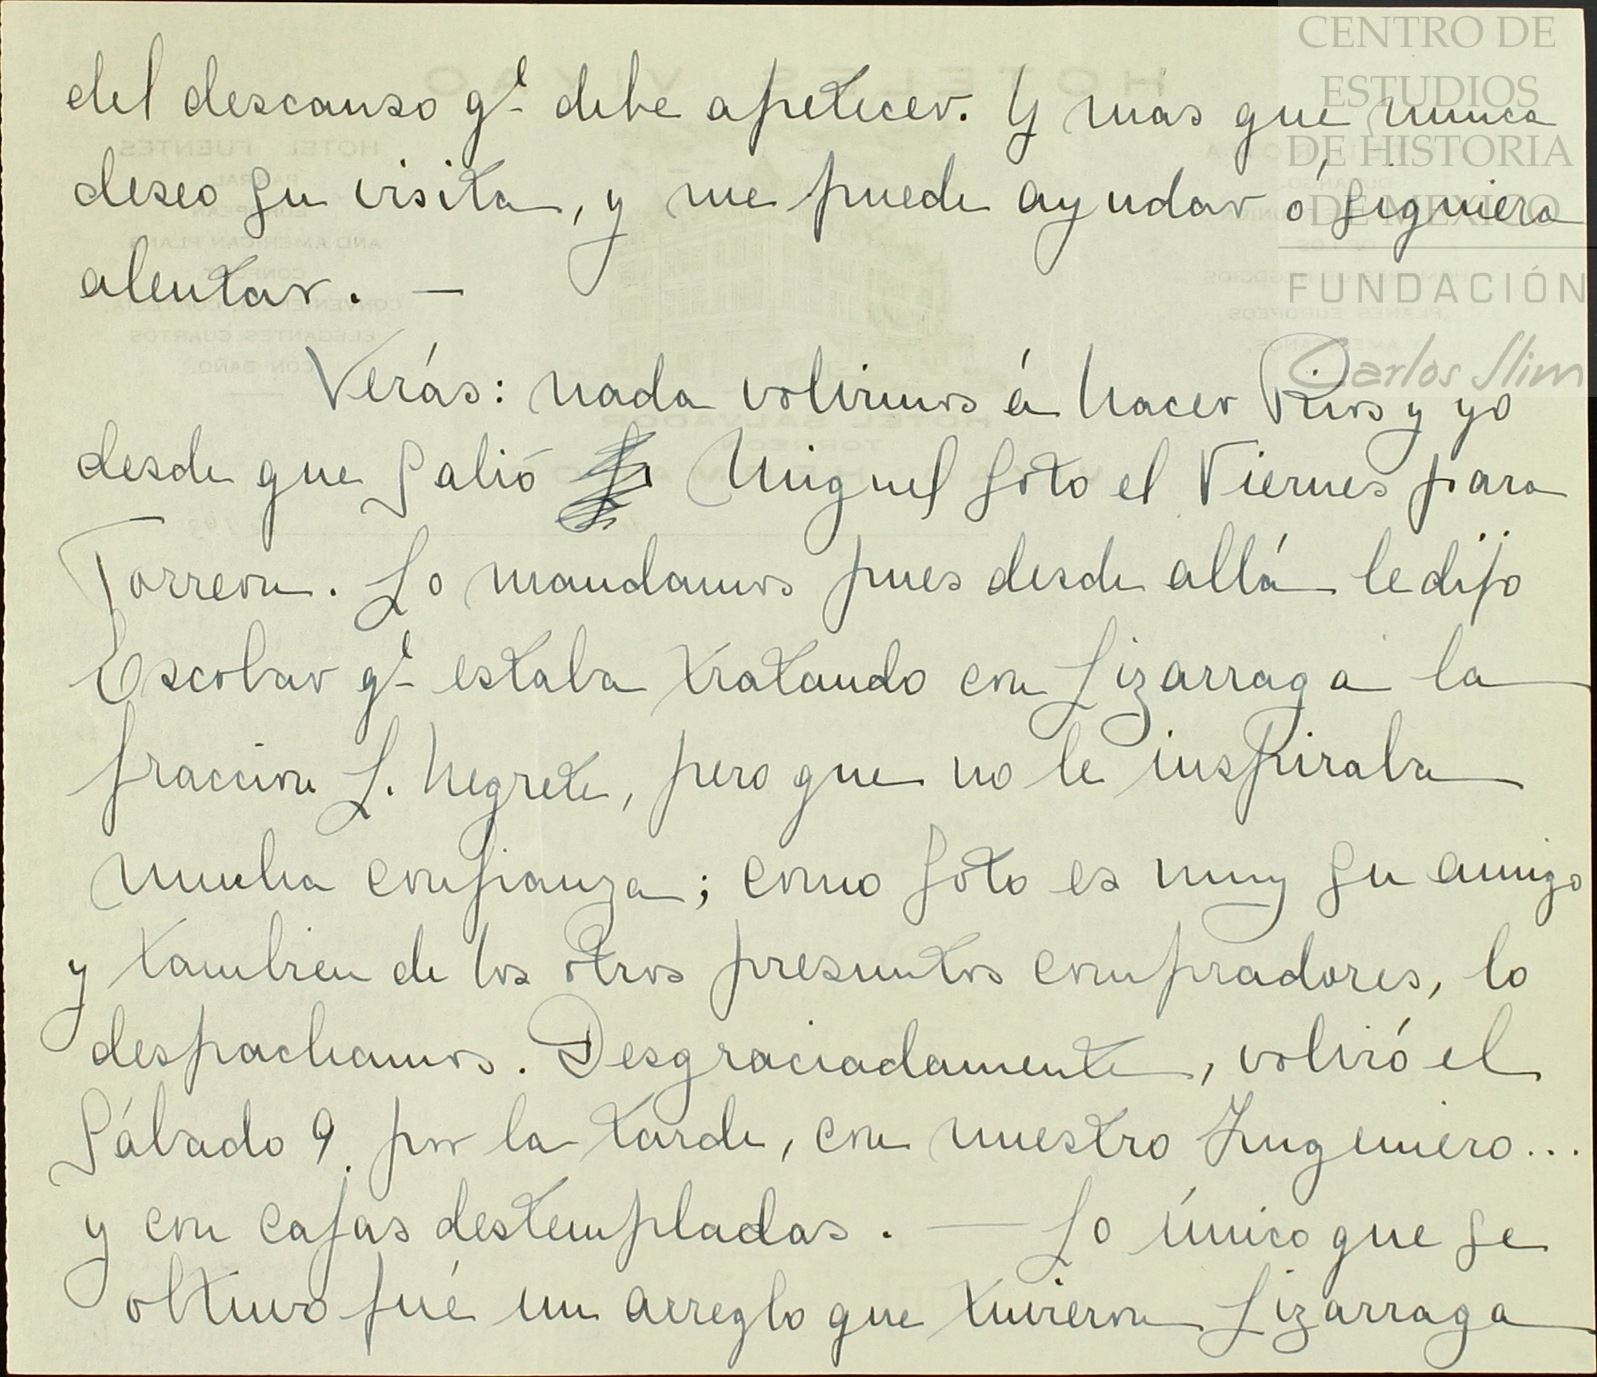 CENTRO DE
ESTUDIOS
DE HISTORIA
DE MÉXICO
FUNDACIÓN
Carlos Slim
del descanso qᵉ debe apetecer. Y mas que nunca
deseo su visita, y me puede ayudar ó siquiera
alentar. —
Verás: nada volvimos á hacer Rios y yo
desde que salió Miguel Soto el Viernes para
Torreon. Lo mandamos pues desde allá le dijo
Escobar qᵉ estaba tratando con Lizarraga la
fraccion L. Negrete, pero que no le inspiraba
mucha confianza; como Soto es muy su amigo
y tambien de los otros presuntos compradores, lo
despachamos. Desgraciadamente, volvió el
Sábado 9 por la tarde, con nuestro Ingeniero...
y con cajas destempladas. — Lo único que se
obtuvo fué un arreglo que tuvieron Lizarraga